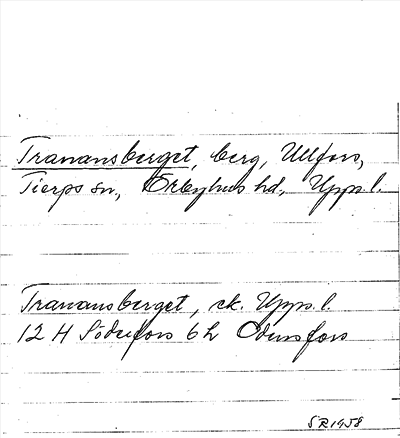 Tranansberget, berg, Ullfors,
Tierps sn., Örbyhus hd., Upps.l.
Tranansberget, ek. Upps.l
12 H Söderfors 6h Odensfors
SR 1958